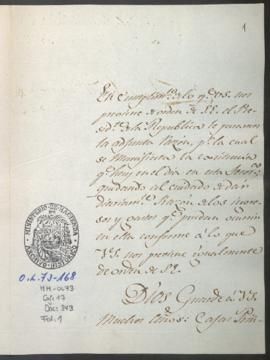 1
En cumplim.to de lo q.e V.S. nos
previene de orden de S.E. el Pre-
sid.te de la Republica le pasamos
la adjunta razon, p.r la cual
se manifiesta la existencia
q.e hay en el dia en esta
quedando al cuidado de dar
diariam.te razon de los ingre-
sos y gastos q.e puedan ocurrir
en ella conforme á lo que
V.S. nos previene igualmente
de orden de S.E.
Dios Guarde á V.S.
muchos años: Casa
MINISTERIO DE HACIENDA
O.L. 73-168
MH-0473
Caj: 17
Doc: 343
Fol: 1